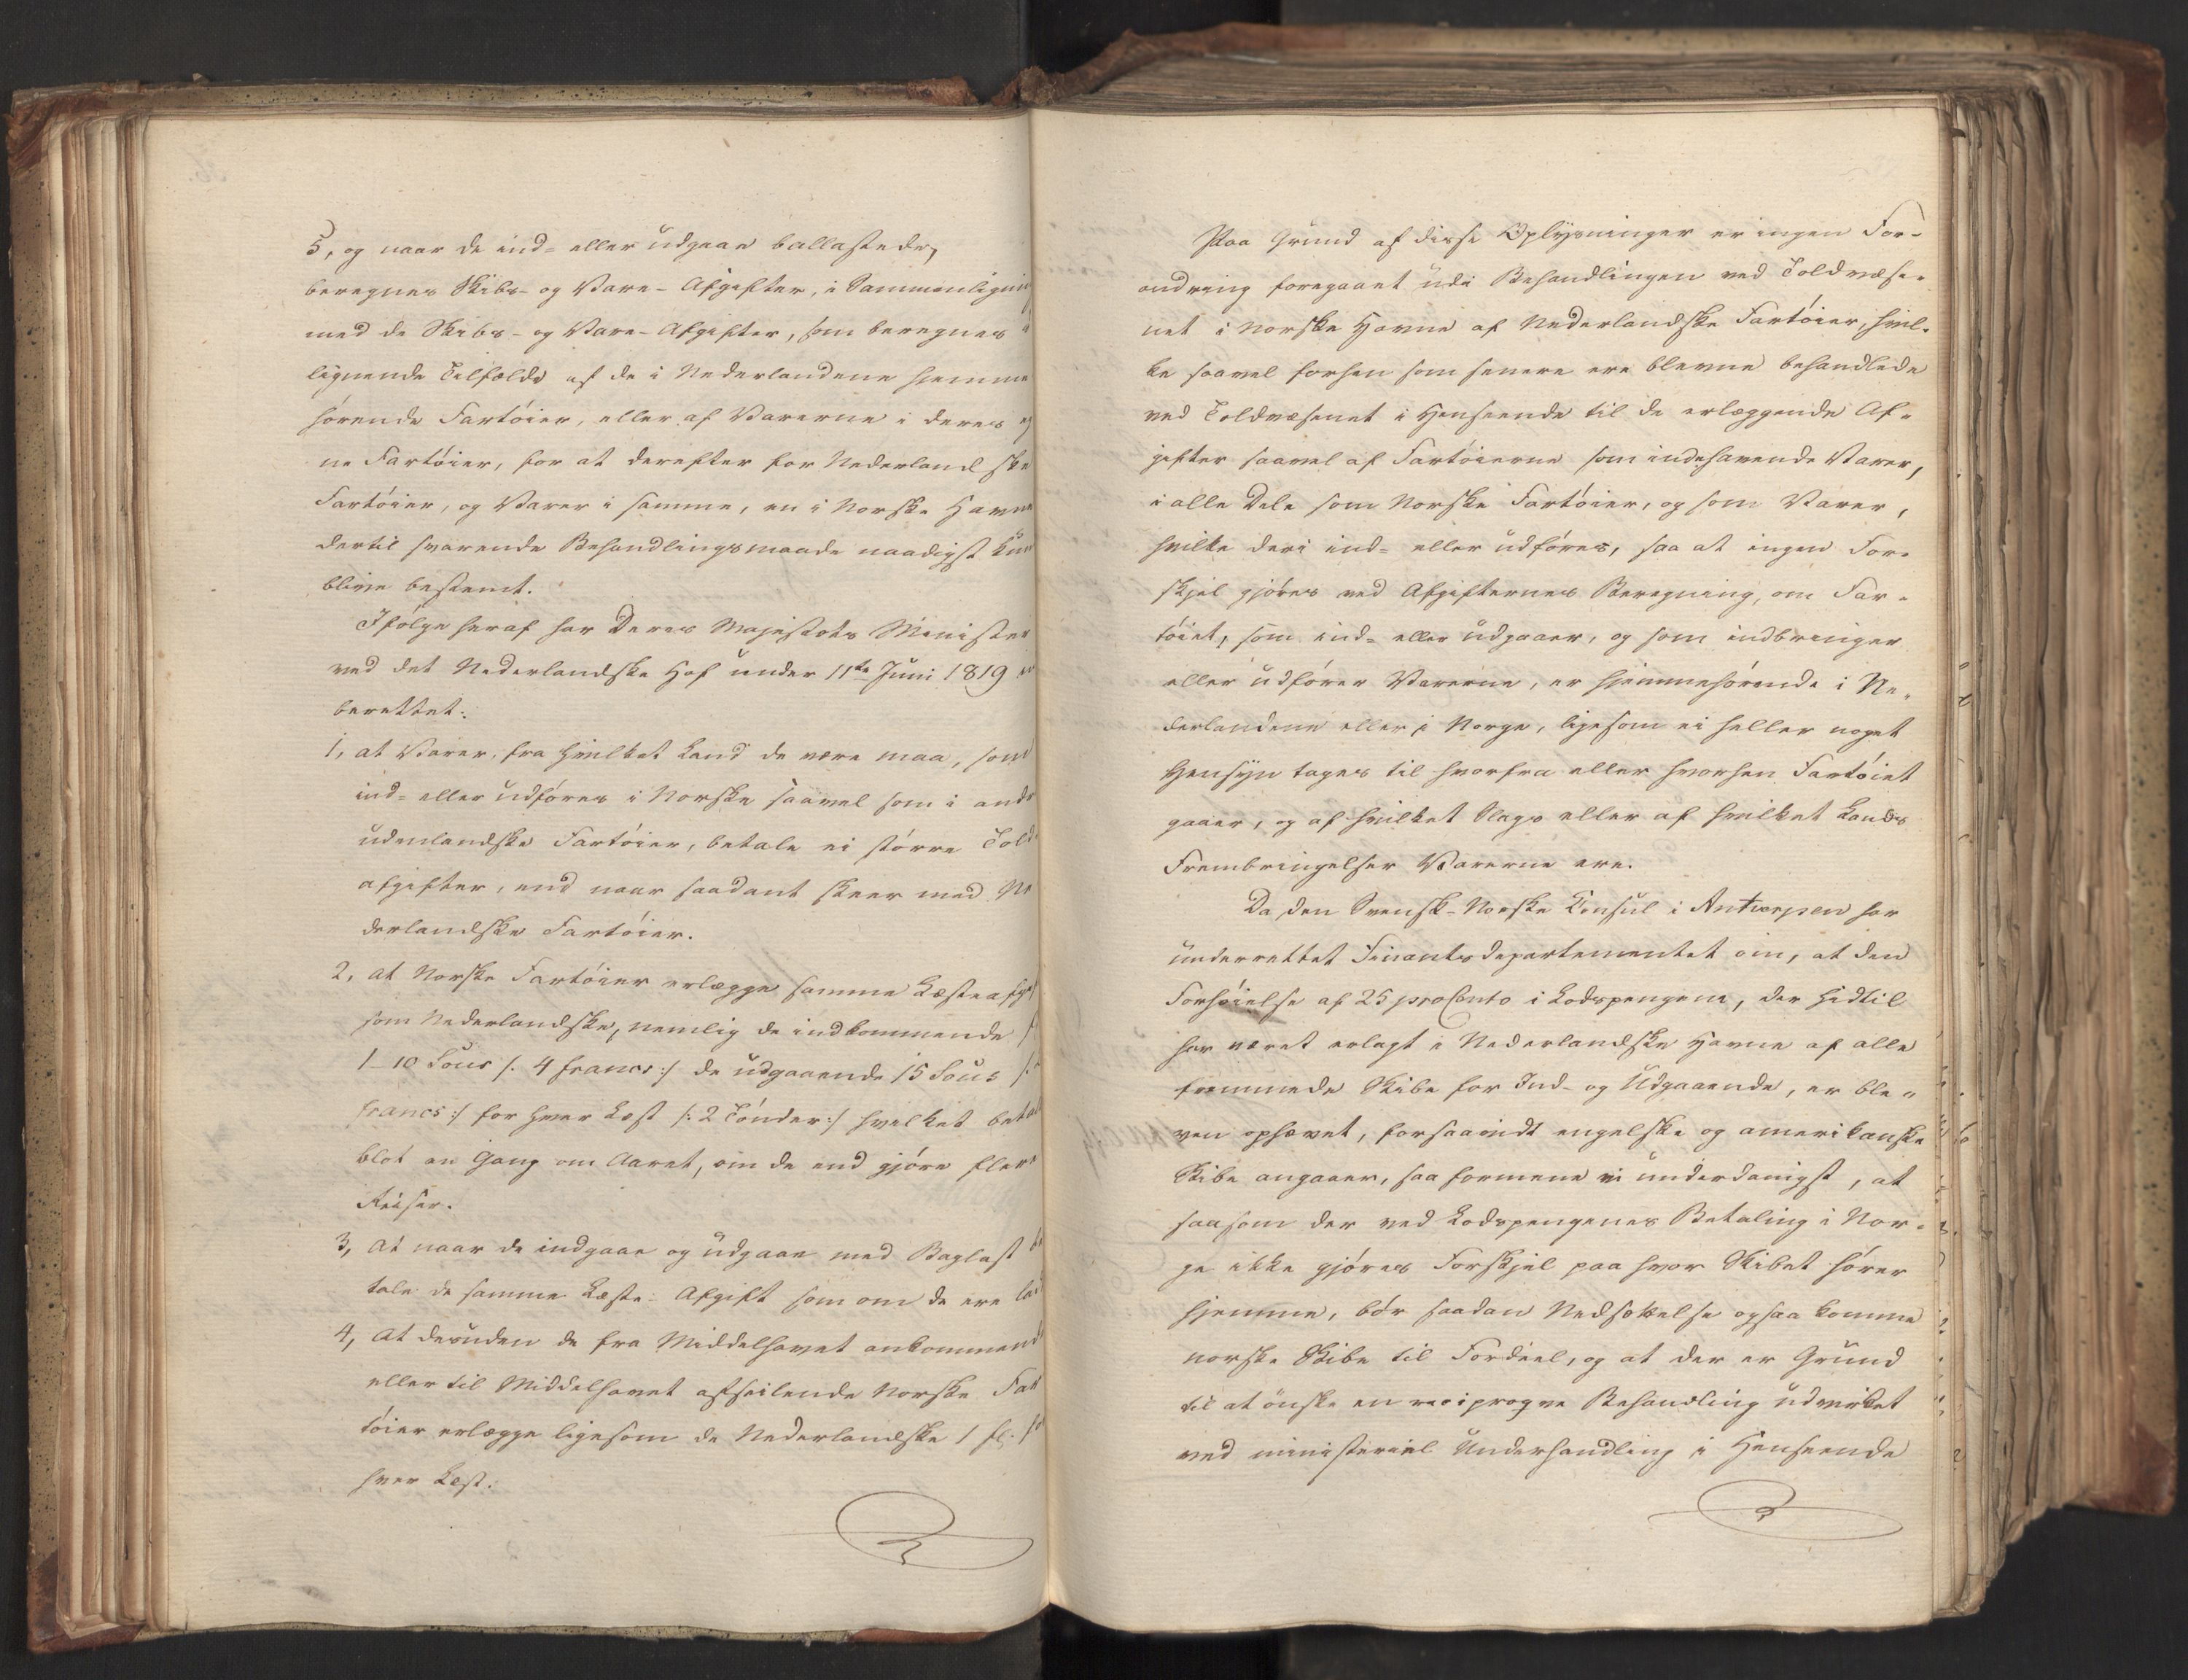 5, og naar de ind- eller udgaae ballastede,
beregnes Skibs- og Vare-Afgifter, i Sammenligning
med de Skibs- og Vare-Afgifter, som beregnes i
lignende Tilfælde af de i Nederlandene hiemme
hørende Fartøier, eller af Varerne i deres eg
ne Fartøier, for at derefter for Nederlandske
Fartøier, og Varer i samme, en i Norske Havne
dertil svarende Behandlingsmaade naadigst kun
blive bestemt.
Ifølge heraf har Deres Majestæts Minister
ved det Nederlandske Hof under 11te Juni 1819
berettet:
1, at Varer, fra hvilket Land de være maa, som
ind- eller udføres i Norske saavel som i andre
udenlandske Fartøier, betale ei større Told
afgifter, end naar saadant skeer med Ne
derlandske Fartøier.
2, at Norske Fartøier erlægge samme Læsteafgift
som Nederlandske, nemlig de indkommende
1-10 Sous /: 4 francs :/ de udgaaende 15 Sous /:
francs :/ for hver Læst /: 2 Tønder :/ hvilket betal
blot en Gang om Aaret, om de end gjøre flere
Reiser.
3, At naar de indgaae og udgaae med Baglast be
tale de samme Læste-Afgift som om de ere lad
4, At desuden de fra Middelhavet ankommende
eller til Middelhavet afseilende Norske Far
tøier erlægge ligesom de Nederlandske 1 fl: for
hver Læst.
Paa Grund af disse Oplysninger er ingen For-
andring foregaaet udi Behandlingen ved Toldvæse-
net i Norske Havne af Nederlandske Fartøier, hvil-
ke saavel forhen som senere ere blevne behandlede
ved Toldvæsenet i Henseende til de erlæggende Af-
gifter saavel af Fartøierne som indehavende Varer,
i alle Dele som Norske Fartøier, og som Varer,
hvilke deri ind- eller udføres, saa at ingen For-
skjel gjøres ved Afgifternes Beregning, om Far-
tøiet, som ind- eller udgaaer, og som indbringer
eller udfører Varerne, er hjemmehørende i Ne-
derlandene eller i Norge, ligesom ei heller noget
Hensyn tages til hvorfra eller hvorhen Fartøiet
gaaer, og af hvilket Slags eller af hvilket Lands
Frembringelser Varerne ere.
Da den Svensk-Norske Consul i Antwerpen har
underrettet Finantsdepartementet om, at den
Forhøielse af 25 pro Cento i Lodspengene, der hidtil
har været erlagt i Nederlandske Havne af alle
fremmede Skibe for Ind- og Udgaaende, er ble-
ven ophævet, forsaavidt engelske og amerikanske
Skibe angaaer, saa formene vi underdanigst, at
saasom der ved Lodspengenes Betaling i Nor-
ge ikke gjøres Forskjel paa hvor Skibet hører
hjemme, bør saadan Nedsættelse ogsaa komme
norske Skibe til Fordeel, og at der er Grund
til at ønske en reciproqve Behandling udvirket
ved ministeriel Underhandling i Henseende